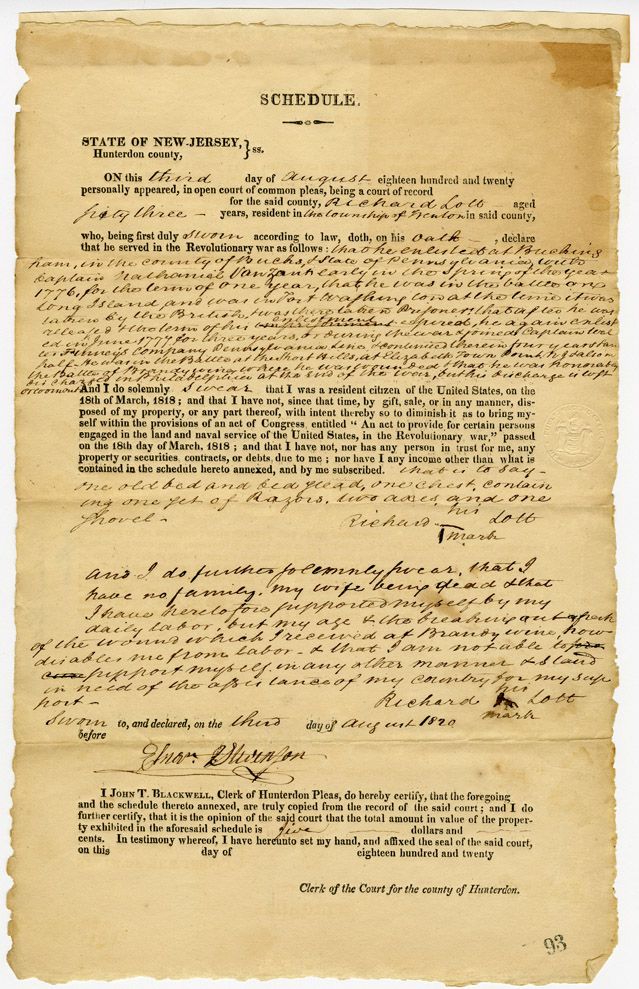 SCHEDULE.
STATE OF NEW-JERSEY, } ss.
Hunterdon county,
ON this third day of August eighteen hundred and twenty
personally appeared, in open court of common pleas, being a court of record
for the said county, Richard Lott — aged
sixty three — years, resident in the township of Trenton in said county,
who, being first duly sworn according to law, doth, on his oath —, declare
that he served in the Revolutionary war as follows: that he enlisted at Bucking
ham, in the county of Bucks, & State of Pennsylvania, with
Captain Nathaniel Vanzant early in the Spring of the year
1776, for the term of one year, that he was in the battle on
Long Island and was in Fort Washington at the time it was
taken by the British, & was there taken Prisoner: that after he was
released & the term of his enlistment expired, he again enlist
ed in June 1777 for three years, or during the war & joined Captain
Company Pennsylvania Line & continued therein four years & an
half— He was in the Battle, at the Short Hills, at Elizabeth Town Point N J & also in
the Battle of Brandywine where he was wounded & that he was honorably
discharged in Philadelphia at the end of the war, but his discharge is lost
And I do solemnly swear that I was a resident citizen of the United States, on the
18th of March, 1818; and that I have not, since that time, by gift, sale, or in any manner, dis-
posed of my property, or any part thereof, with intent thereby so to diminish it as to bring my-
self within the provisions of an act of Congress, entitled “ An act to provide for certain persons
engaged in the land and naval service of the United States, in the Revolutionary war,” passed
on the 18th day of March, 1818; and that I have not, nor has any person in trust for me, any
property or securities, contracts, or debts, due to me; nor have I any income other than what is
contained in the schedule hereto annexed, and by me subscribed. that is to say—
one old bed and bed stead, one chest, contain
ing one set of Razors, two axes and one
shovel—
his
Richard Lott
mark
And I do further solemnly swear, that I
have no family, my wife being dead & that
I have heretofore supported myself by my
daily labor, but my age & the breaking out afresh
of the wound which I received at Brandywine, now
disables me from labor— & that I am not able to
support myself in any other manner & stand
in need of the assistance of my country for my sup
port—
his
Richard Lott
mark
Sworn to, and declared, on the third day of August 1820
before
I JOHN T. BLACKWELL, Clerk of Hunterdon Pleas, do hereby certify, that the foregoing
and the schedule thereto annexed, are truly copied from the record of the said court; and I do
further certify, that it is the opinion of the said court that the total amount in value of the proper-
ty exhibited in the aforesaid schedule is five dollars and —
cents. In testimony whereof, I have hereunto set my hand, and affixed the seal of the said court,
on this day of eighteen hundred and twenty
Clerk of the Court for the county of Hunterdon.
93